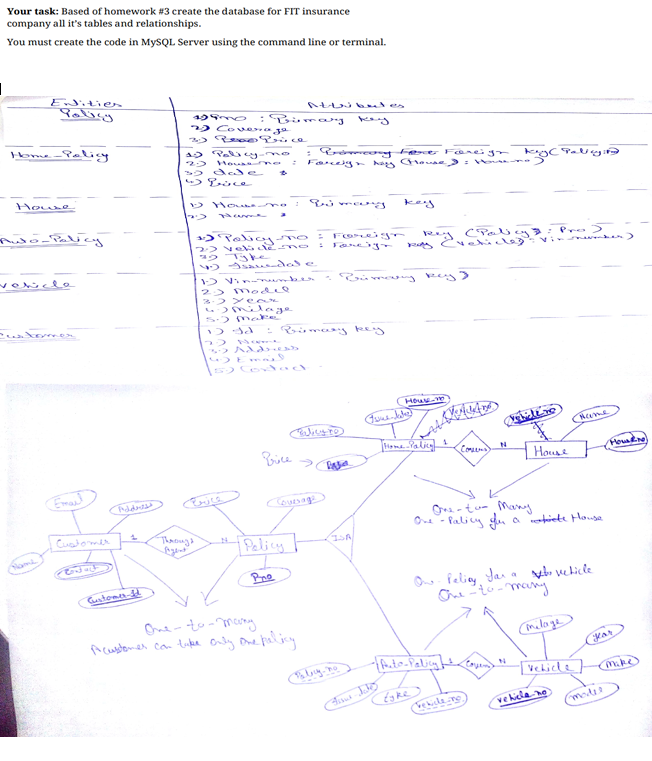 Your task: Based of homework #3 create the database for FIT insurance
company all it's tables and relationships.
You must create the code in MySQL Server using the command line or terminal.
Entities Attributes
Policy
1) Pno : Primary key
2) Coverage
3) Price
Home-Policy
1) Policy-no : Foreign key (Policy)
2) House-no : Foreign key (House) : House-no)
3) date
4) Price
House
1) House-no : Primary key
2) Name
Auto-Policy
1) Policy-no : Foreign key (Policy) : Pno)
2) vehicle-no : foreign key (vehicle) : Vin-number)
3) Type
4) Issuedate
vehicle
1) Vin-number : Primary key
2) model
3) year
4) Milage
5) Make
Customer
1) Id : Primary key
2) Name
3) Address
4) Email
5) Contact
House-no
Issue-date
Vehicle-no
vehicle-no
Name
Policy-no
Home-Policy
1
Concerns
N
House
House-no
Price
One-to-Many
One-Policy for a House
Email
Address
Price
Coverage
Customer
1
Through Agent
N
Policy
ISA
Name
Contact
Customer-Id
Pno
One-to-many
A customer can take only one policy
One-Policy for a vehicle
One-to-many
Milage
year
Policy-no
Auto-Policy
1
Concerns
N
Vehicle
make
Issue date
type
vehicle-no
vehicle-no
model